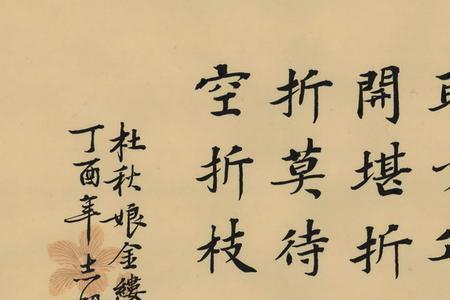 開堪折
折莫待
空折枝
杜秋娘金縷
丁酉年志